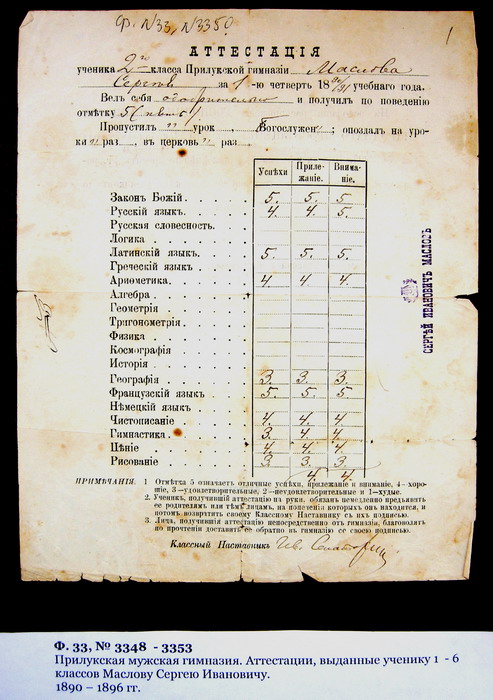 Ф. №33, №3350
1
АТТЕСТАЦІЯ
ученика 2го класса Прилукской гимназіи Маслова
Сергѣя за 1-ю четверть 1890/91 учебнаго года.
Велъ себя и получилъ по поведенію
отмѣтку 5 (пять)
Пропустилъ " урок , Богослужен " ; опоздалъ на уро-
ки " раз , въ церковь " раз
Успѣхи Приле-жаніе. Внима-ніе.
Законъ Божій 5. 5. 5.
Русскій языкъ 4. 4. 5.
Русская словесность.
Логика
Латинскій языкъ 5. 5. 5.
Греческій языкъ
Ариѳметика 4. 4. 4.
Алгебра
Геометрія
Тригонометрія
Физика
Космографія
Исторія
Географія 3. 3. 3.
Французскій языкъ 5. 5. 5
Нѣмецкій языкъ
Чистописаніе 4. 4. 4.
Гимнастика 3. 4. 4.
Пѣніе 4. 4. 4.
Рисованіе 3. 3. 3.
4. 4.
СЕРГѢЙ ИВАНОВИЧЪ МАСЛОВЪ
ПРИМѢЧАНІЯ: 1 Отмѣтка 5 означаетъ отличные успѣхи, прилежаніе и вниманіе, 4-хоро-
шіе, 3—удовлетворительные, 2—неудовлетворительные и 1—худые.
2. Ученик, получившій аттестацію на руки, обязанъ немедленно предъявить
ее родителямъ или тѣмъ лицамъ, на попеченіи которыхъ онъ находится, и
потомъ возвратить своему Классному Наставнику съ ихъ подписью.
3. Лица, получившія аттестацію непосредственно отъ гимназіи, благоволятъ
по прочтеніи доставить ее обратно къ гимназію со своею подписью.
Классный Наставникъ
Ф. 33, № 3348 - 3353
Прилукская мужская гимназия. Аттестации, выданные ученику 1 - 6
классов Маслову Сергею Ивановичу.
1890 – 1896 гг.